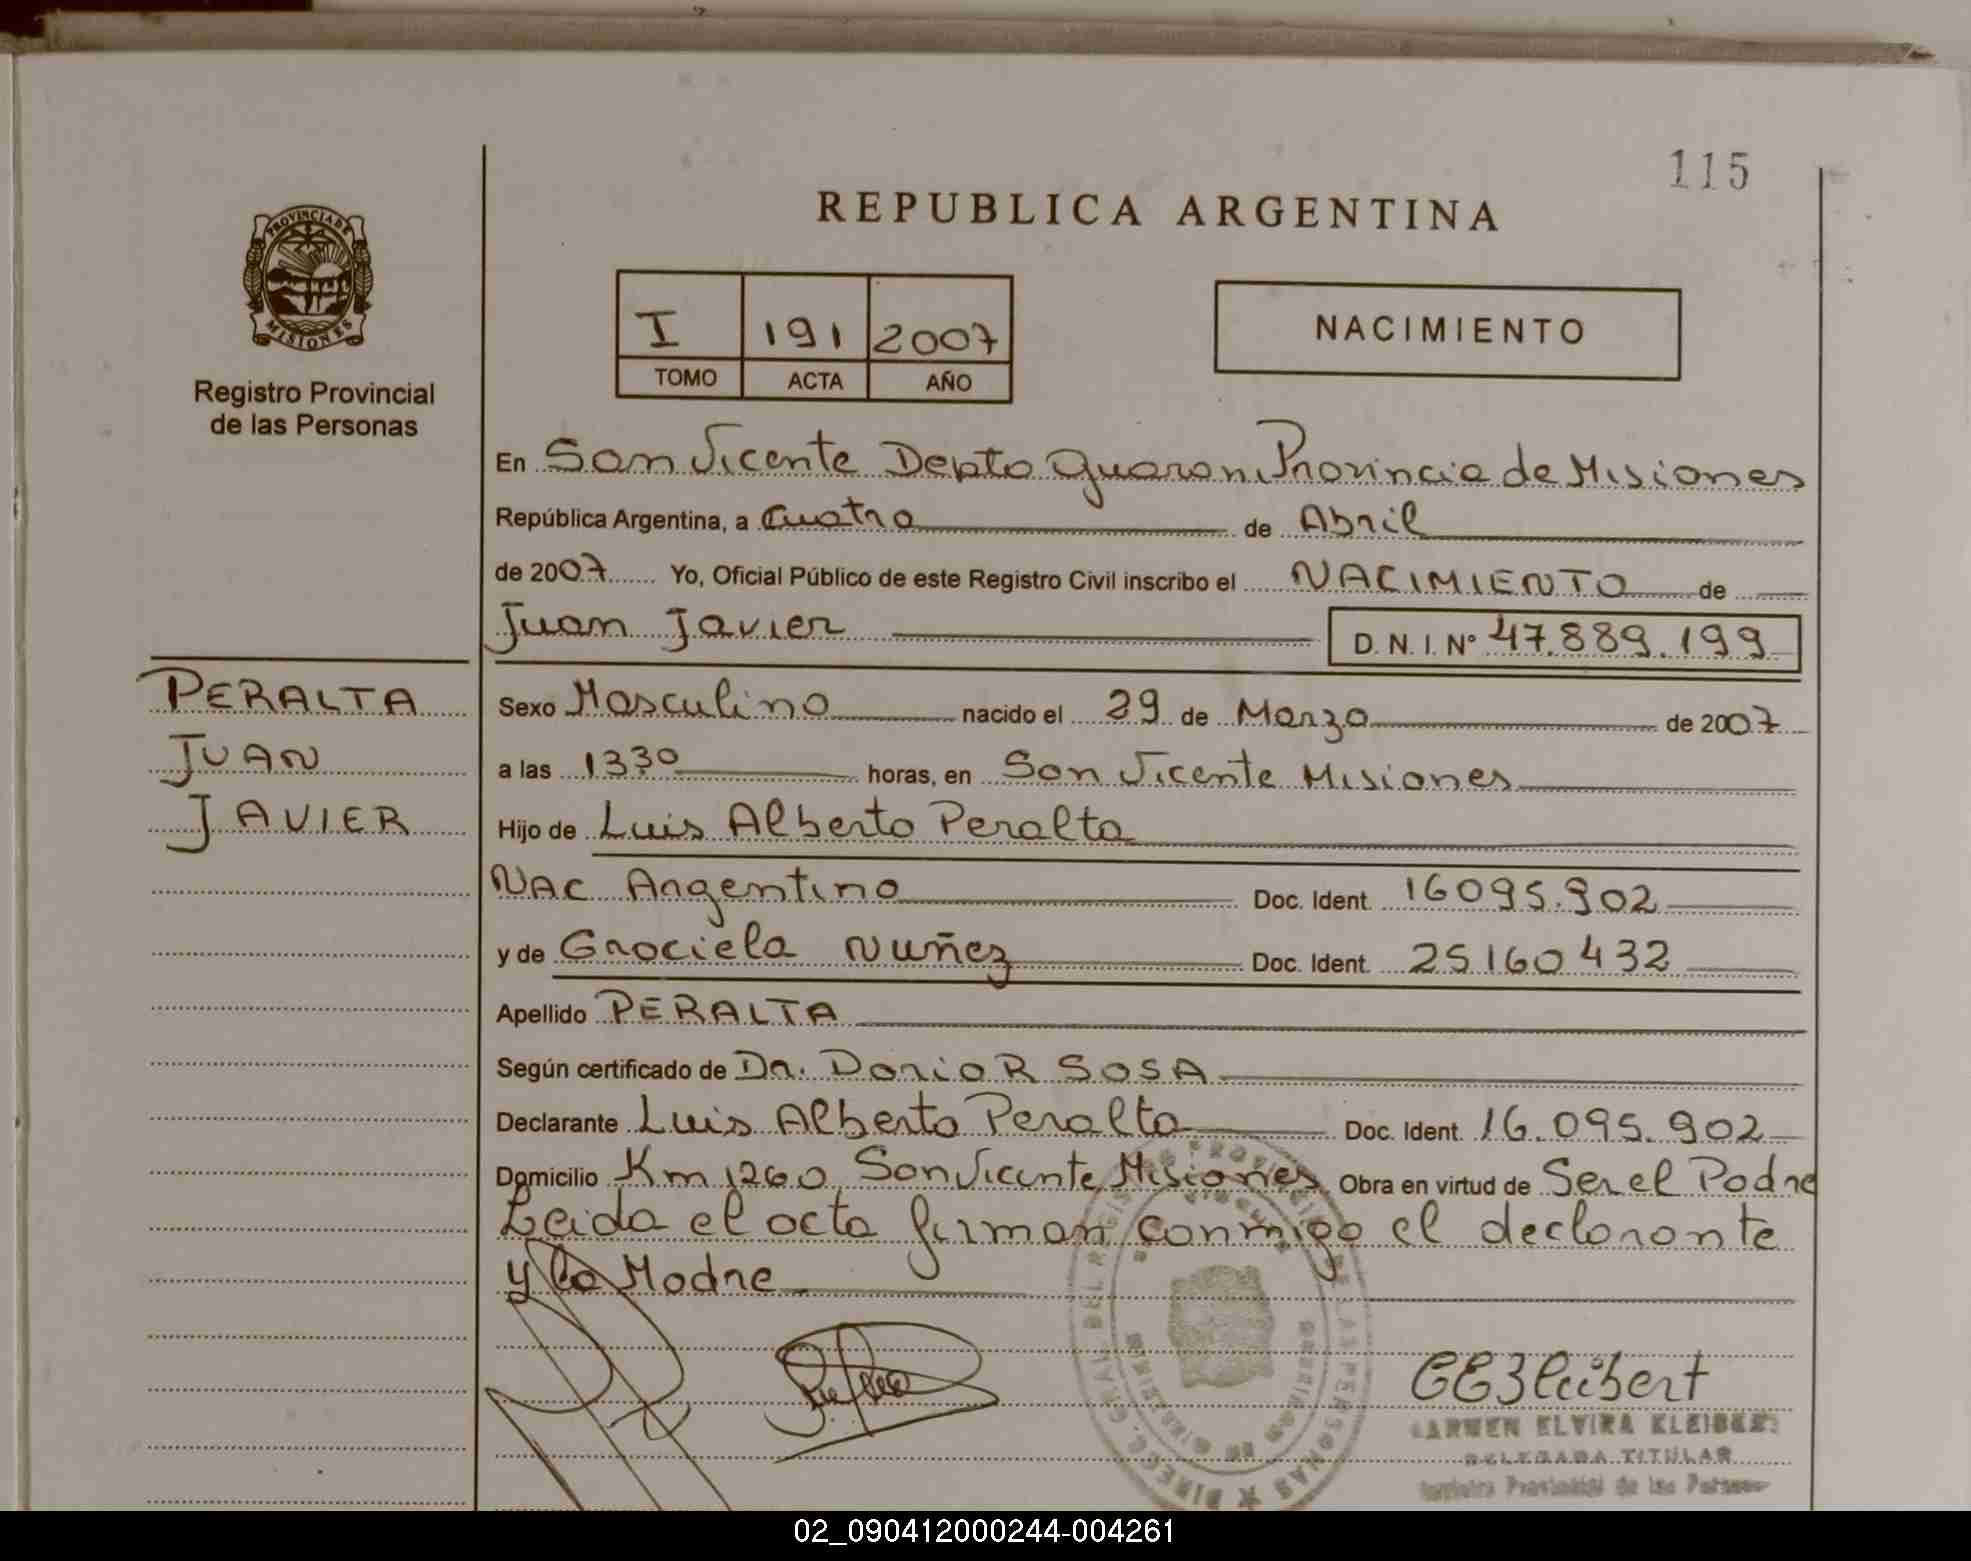 115
REPUBLICA ARGENTINA
PROVINCIA DE
MISIONES
Registro Provincial
de las Personas
I 191 2007
TOMO ACTA AÑO
NACIMIENTO
En San Vicente Depto Guarani Provincia de Misiones
República Argentina, a Cuatro de Abril
de 2007 Yo, Oficial Público de este Registro Civil inscribo el NACIMIENTO de
Juan Javier D. N. I. Nº 47.889.199
PERALTA
JUAN
JAVIER
Sexo Masculino nacido el 29 de Marzo de 2007
a las 1330 horas, en San Vicente Misiones
Hijo de Luis Alberto Peralta
Nac Argentino Doc. Ident. 16095.902
y de Graciela Nuñez Doc. Ident. 25160432
Apellido PERALTA
Según certificado de Dr. Dario R SOSA
Declarante Luis Alberto Peralta Doc. Ident. 16.095.902
Domicilio Km 1260 San Vicente Misiones Obra en virtud de Ser el Padre
Leida el acta firman conmigo el declarante
y la Madre
DIREC. GRAL. DEL REGISTRO PROVINCIAL DE LAS PERSONAS
CARMEN ELVIRA KLEIBERT
DELEGADA TITULAR
Provincial de las Personas
02_090412000244-004261